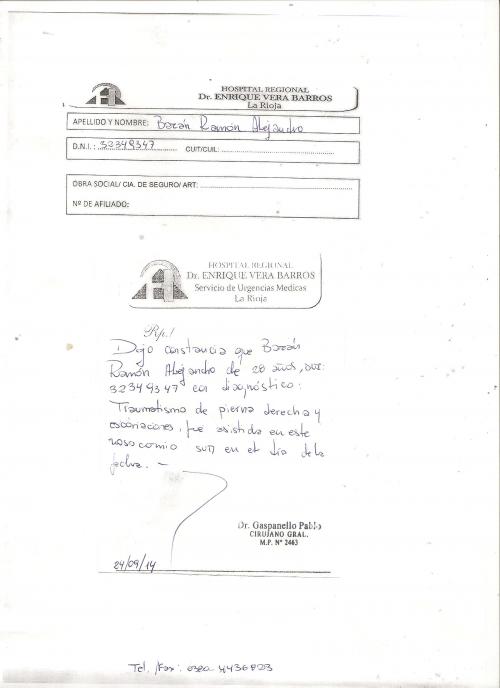 HOSPITAL REGIONAL
Dr. ENRIQUE VERA BARROS
La Rioja
APELLIDO Y NOMBRE: Bazán Ramón Alejandro
D.N.I.: 32349347 CUIT/CUIL:
OBRA SOCIAL/ CIA. DE SEGURO/ ART:
Nº DE AFILIADO:
HOSPITAL REGIONAL
Dr. ENRIQUE VERA BARROS
Servicio de Urgencias Medicas
La Rioja
Rp.!
Dejo constancia que Bazán
Ramón Alejandro de 28 años, DNI:
32349347 con diagnóstico:
Traumatismo de pierna derecha y
escoriaciones, fue asistido en este
nosocomio en el día de la
fecha. -
Dr. Gaspanello Pablo
CIRUJANO GRAL.
M.P. Nº 2463
24/09/14
Tel. /Fax: 0380 4436823